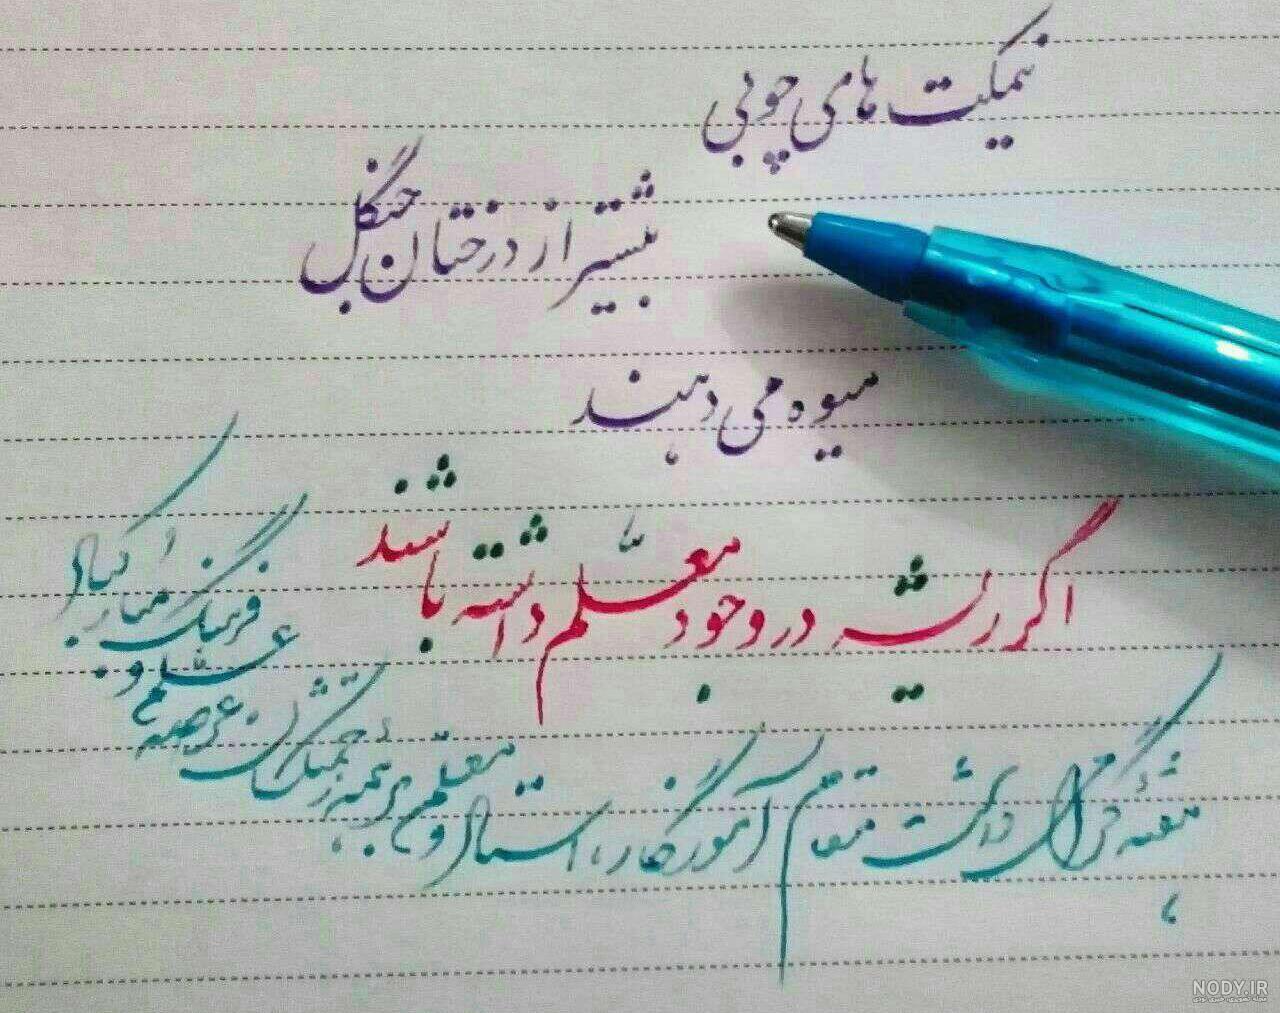 نیمکت های چوبی
بیشتر از درختان جنگل
میوه می دهند
اگر ریشه در وجود معلّم داشته باشند
هفتهٔ گرامی داشت مقام آموزگار، استاد و معلّم بر همهٔ زحمتکشان عرصهٔ علم و فرهنگ مبارکباد
NODY.IR